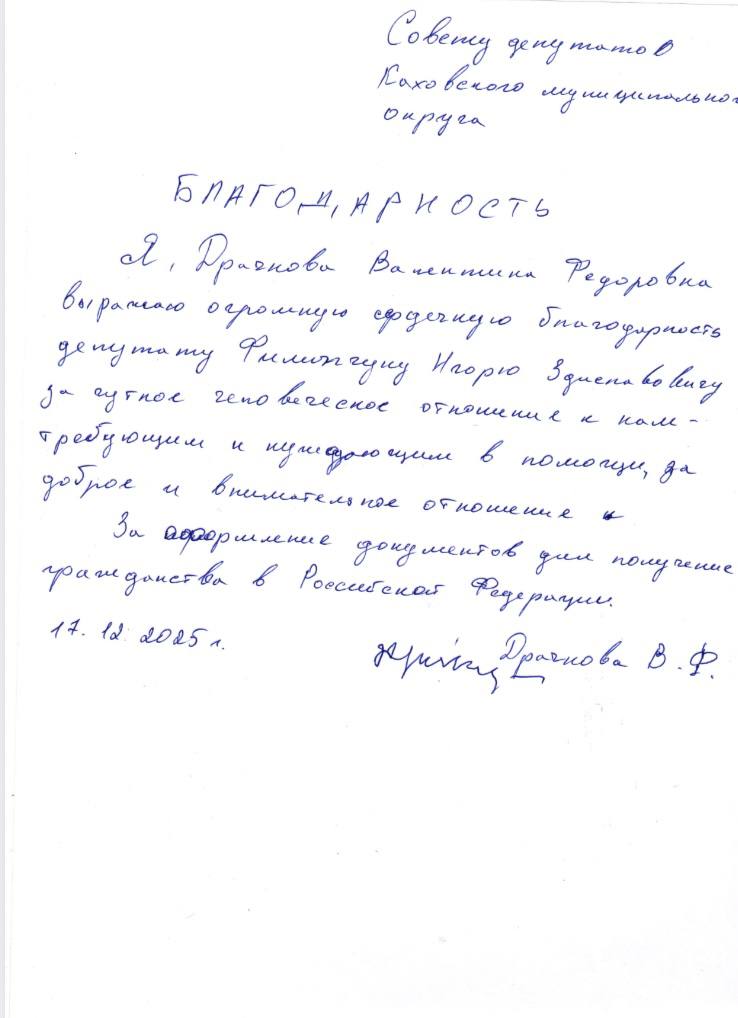 Совету депутатов
Каховского муниципального
округа
БЛАГОДАРНОСТЬ
Я, Драчкова Валентина Федоровна
выражаю огромную сердечную благодарность
депутату Филипчуку Игорю Здиславовичу
за чуткое человеческое отношение к нам -
требующим и нуждающим в помощи, за
доброе и внимательное отношение к
За оформление документов для получение
гражданства в Российской Федерации.
17.12.2025 г.
Драчкова В.Ф.